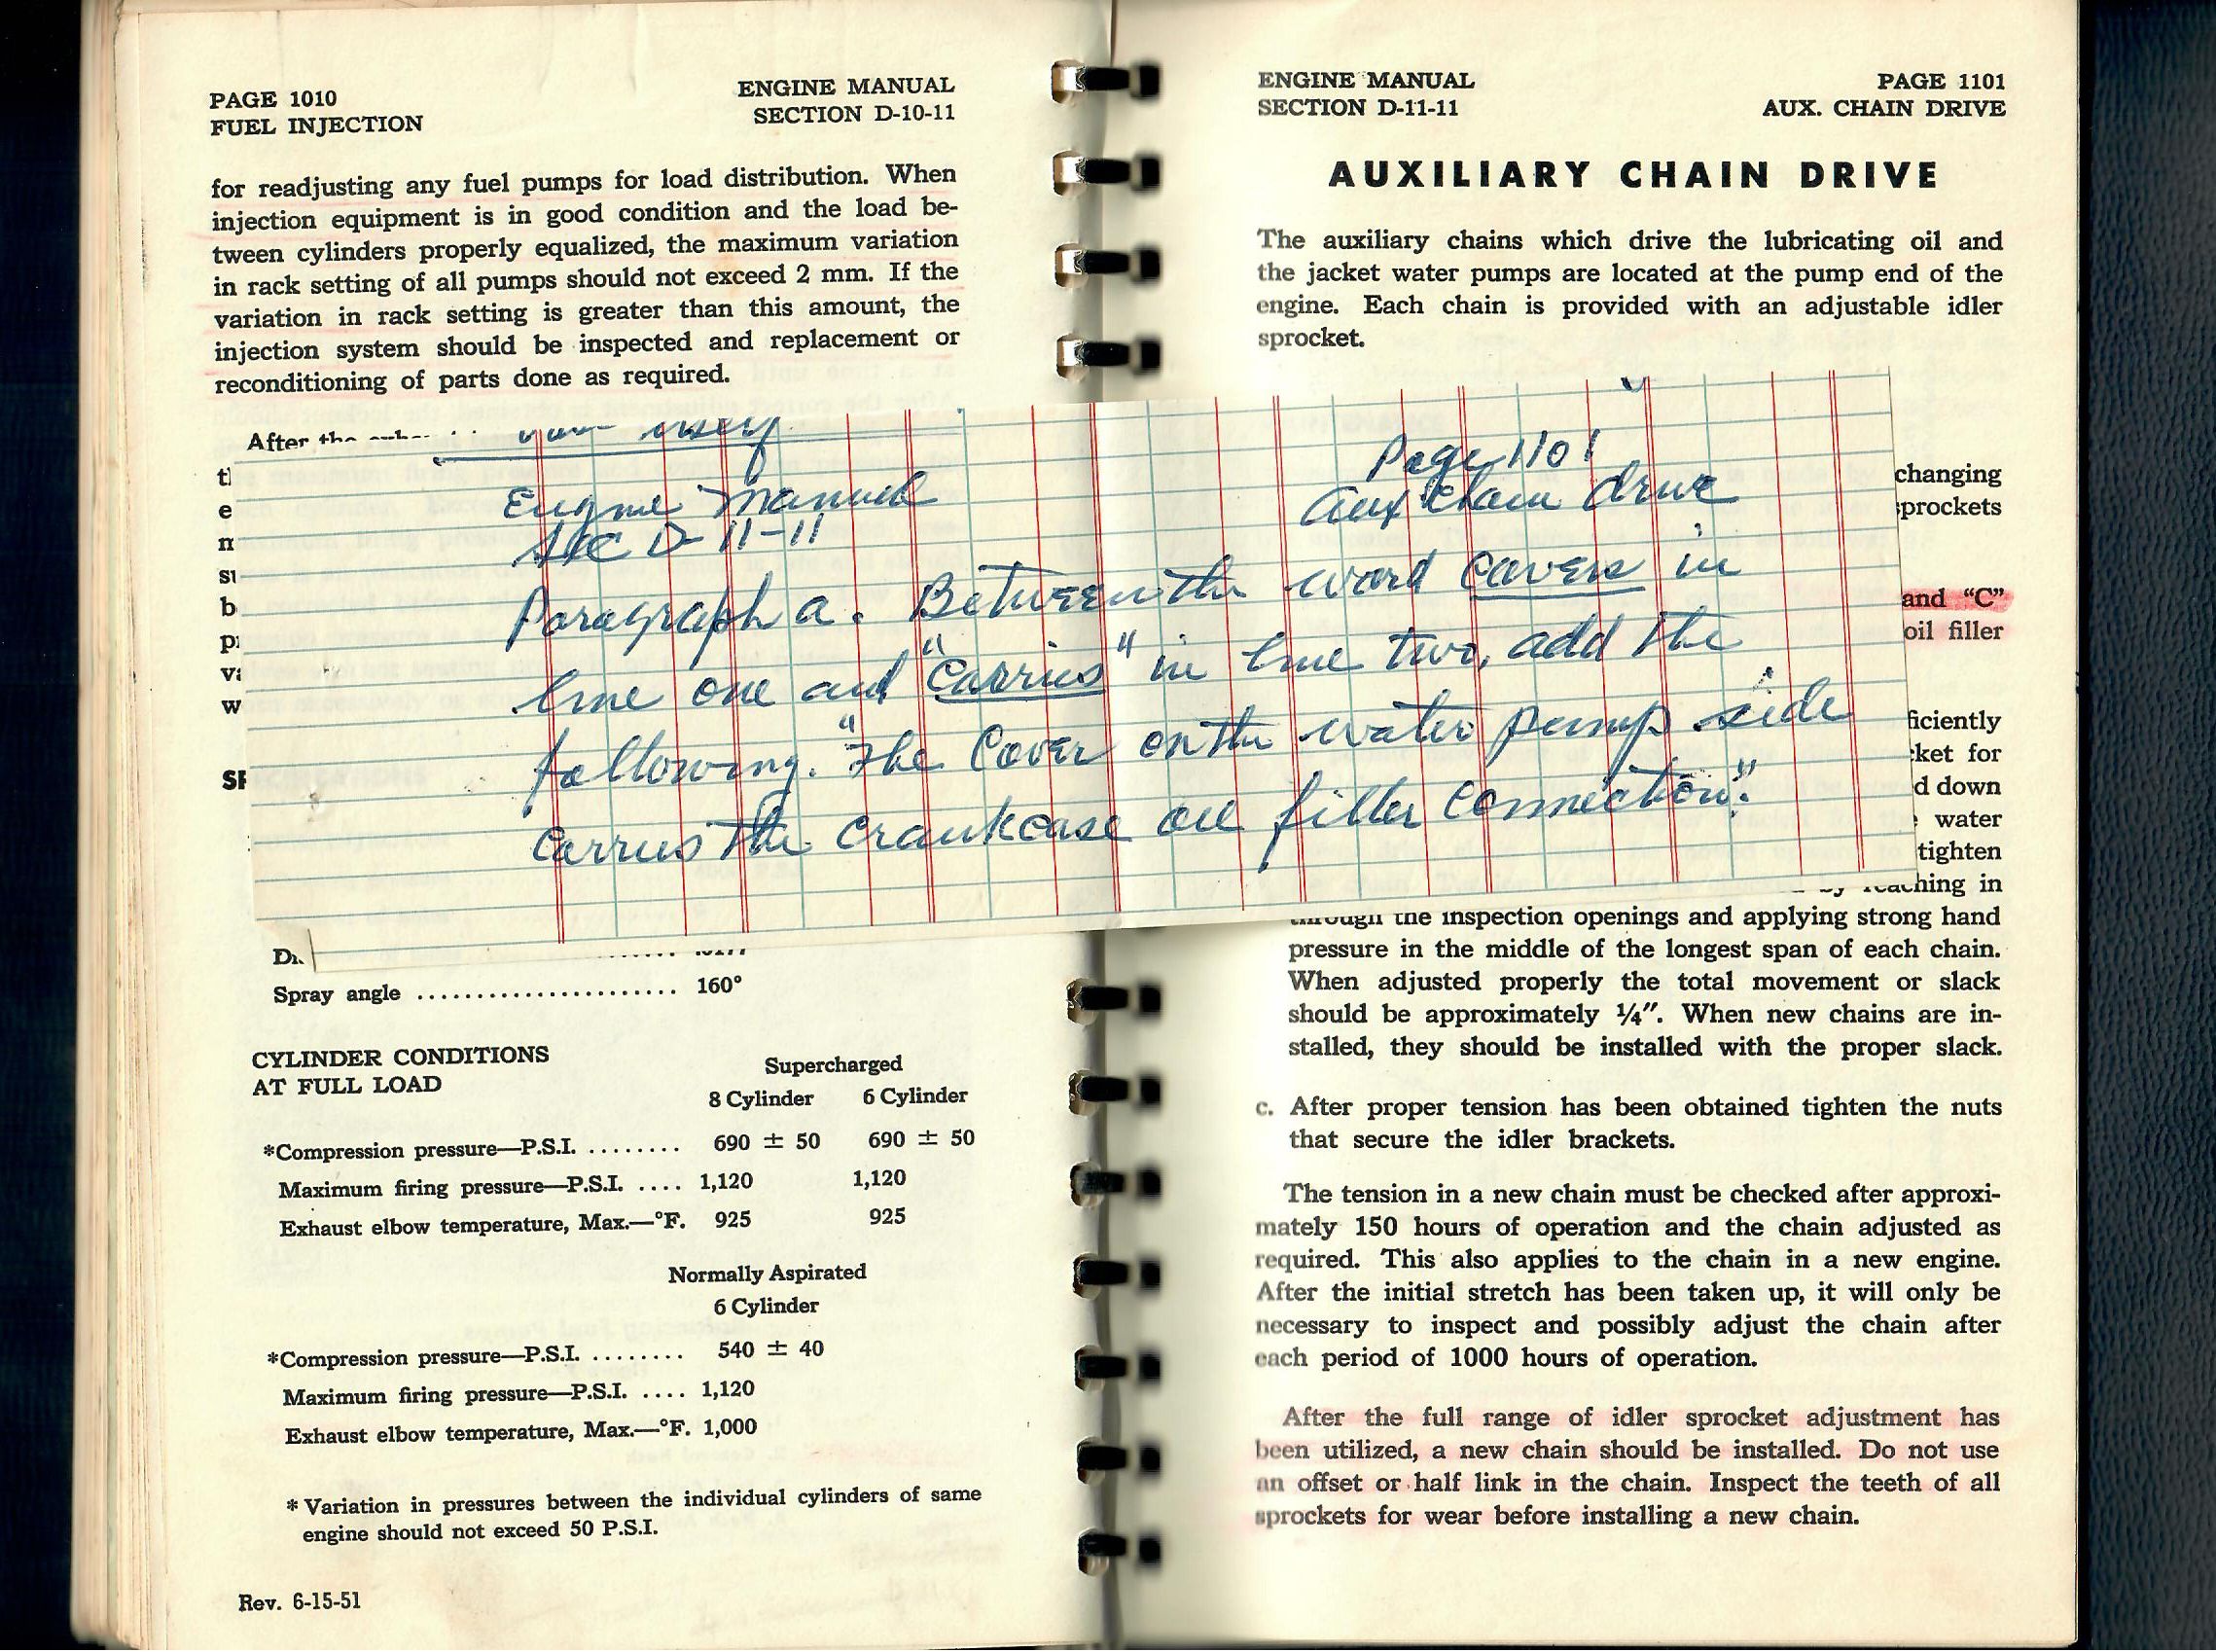 PAGE 1010
FUEL INJECTION
ENGINE MANUAL
SECTION D-10-11
for readjusting any fuel pumps for load distribution. When
injection equipment is in good condition and the load be-
tween cylinders properly equalized, the maximum variation
in rack setting of all pumps should not exceed 2 mm. If the
variation in rack setting is greater than this amount, the
injection system should be inspected and replacement or
reconditioning of parts done as required.
After the
Spray angle ........................ 160°
CYLINDER CONDITIONS
AT FULL LOAD
Supercharged
8 Cylinder 6 Cylinder
*Compression pressure—P.S.I. ........ 690 ± 50 690 ± 50
Maximum firing pressure—P.S.I. .... 1,120 1,120
Exhaust elbow temperature, Max.—°F. 925 925
Normally Aspirated
6 Cylinder
*Compression pressure—P.S.I. ........ 540 ± 40
Maximum firing pressure—P.S.I. .... 1,120
Exhaust elbow temperature, Max.—°F. 1,000
* Variation in pressures between the individual cylinders of same
engine should not exceed 50 P.S.I.
Rev. 6-15-51
Engine Manual
Sec D-11-11
Page 1101
Aux Chain drive
Paragraph a. Between the word covers in
line one and "carries" in line two, add the
following. "The Cover on the water pump side
carries the crankcase oil filler connection".
ENGINE MANUAL
SECTION D-11-11
PAGE 1101
AUX. CHAIN DRIVE
AUXILIARY CHAIN DRIVE
The auxiliary chains which drive the lubricating oil and
the jacket water pumps are located at the pump end of the
engine. Each chain is provided with an adjustable idler
sprocket.
changing
sprockets
and "C"
oil filler
ficiently
ket for
d down
water
tighten
by reaching in
through the inspection openings and applying strong hand
pressure in the middle of the longest span of each chain.
When adjusted properly the total movement or slack
should be approximately ¼". When new chains are in-
stalled, they should be installed with the proper slack.
c. After proper tension has been obtained tighten the nuts
that secure the idler brackets.
The tension in a new chain must be checked after approxi-
mately 150 hours of operation and the chain adjusted as
required. This also applies to the chain in a new engine.
After the initial stretch has been taken up, it will only be
necessary to inspect and possibly adjust the chain after
each period of 1000 hours of operation.
After the full range of idler sprocket adjustment has
been utilized, a new chain should be installed. Do not use
an offset or half link in the chain. Inspect the teeth of all
sprockets for wear before installing a new chain.